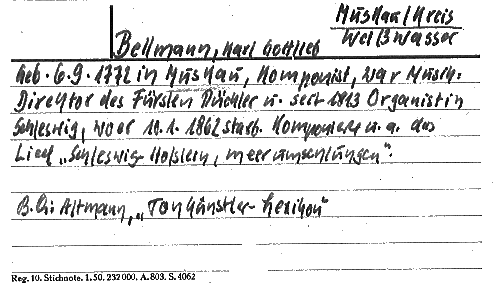 Muskau/Kreis
Weißwasser
Bellmann, Karl Gottlieb
Geb. 6.9.1772 in Muskau, Komponist, war Musik-
Direktor des Fürsten Pückler u. seit 1813 Organist in
Schleswig, wo er 11.1.1862 starb. Komponiere u. a. das
Lied „Schleswig-Holstein, meerumschlungen".
B. Qu: Altmann, „Tonkünstler-Lexikon"
Reg. 10. Stichnote. 1.50. 232000. A. 803. S. 4062